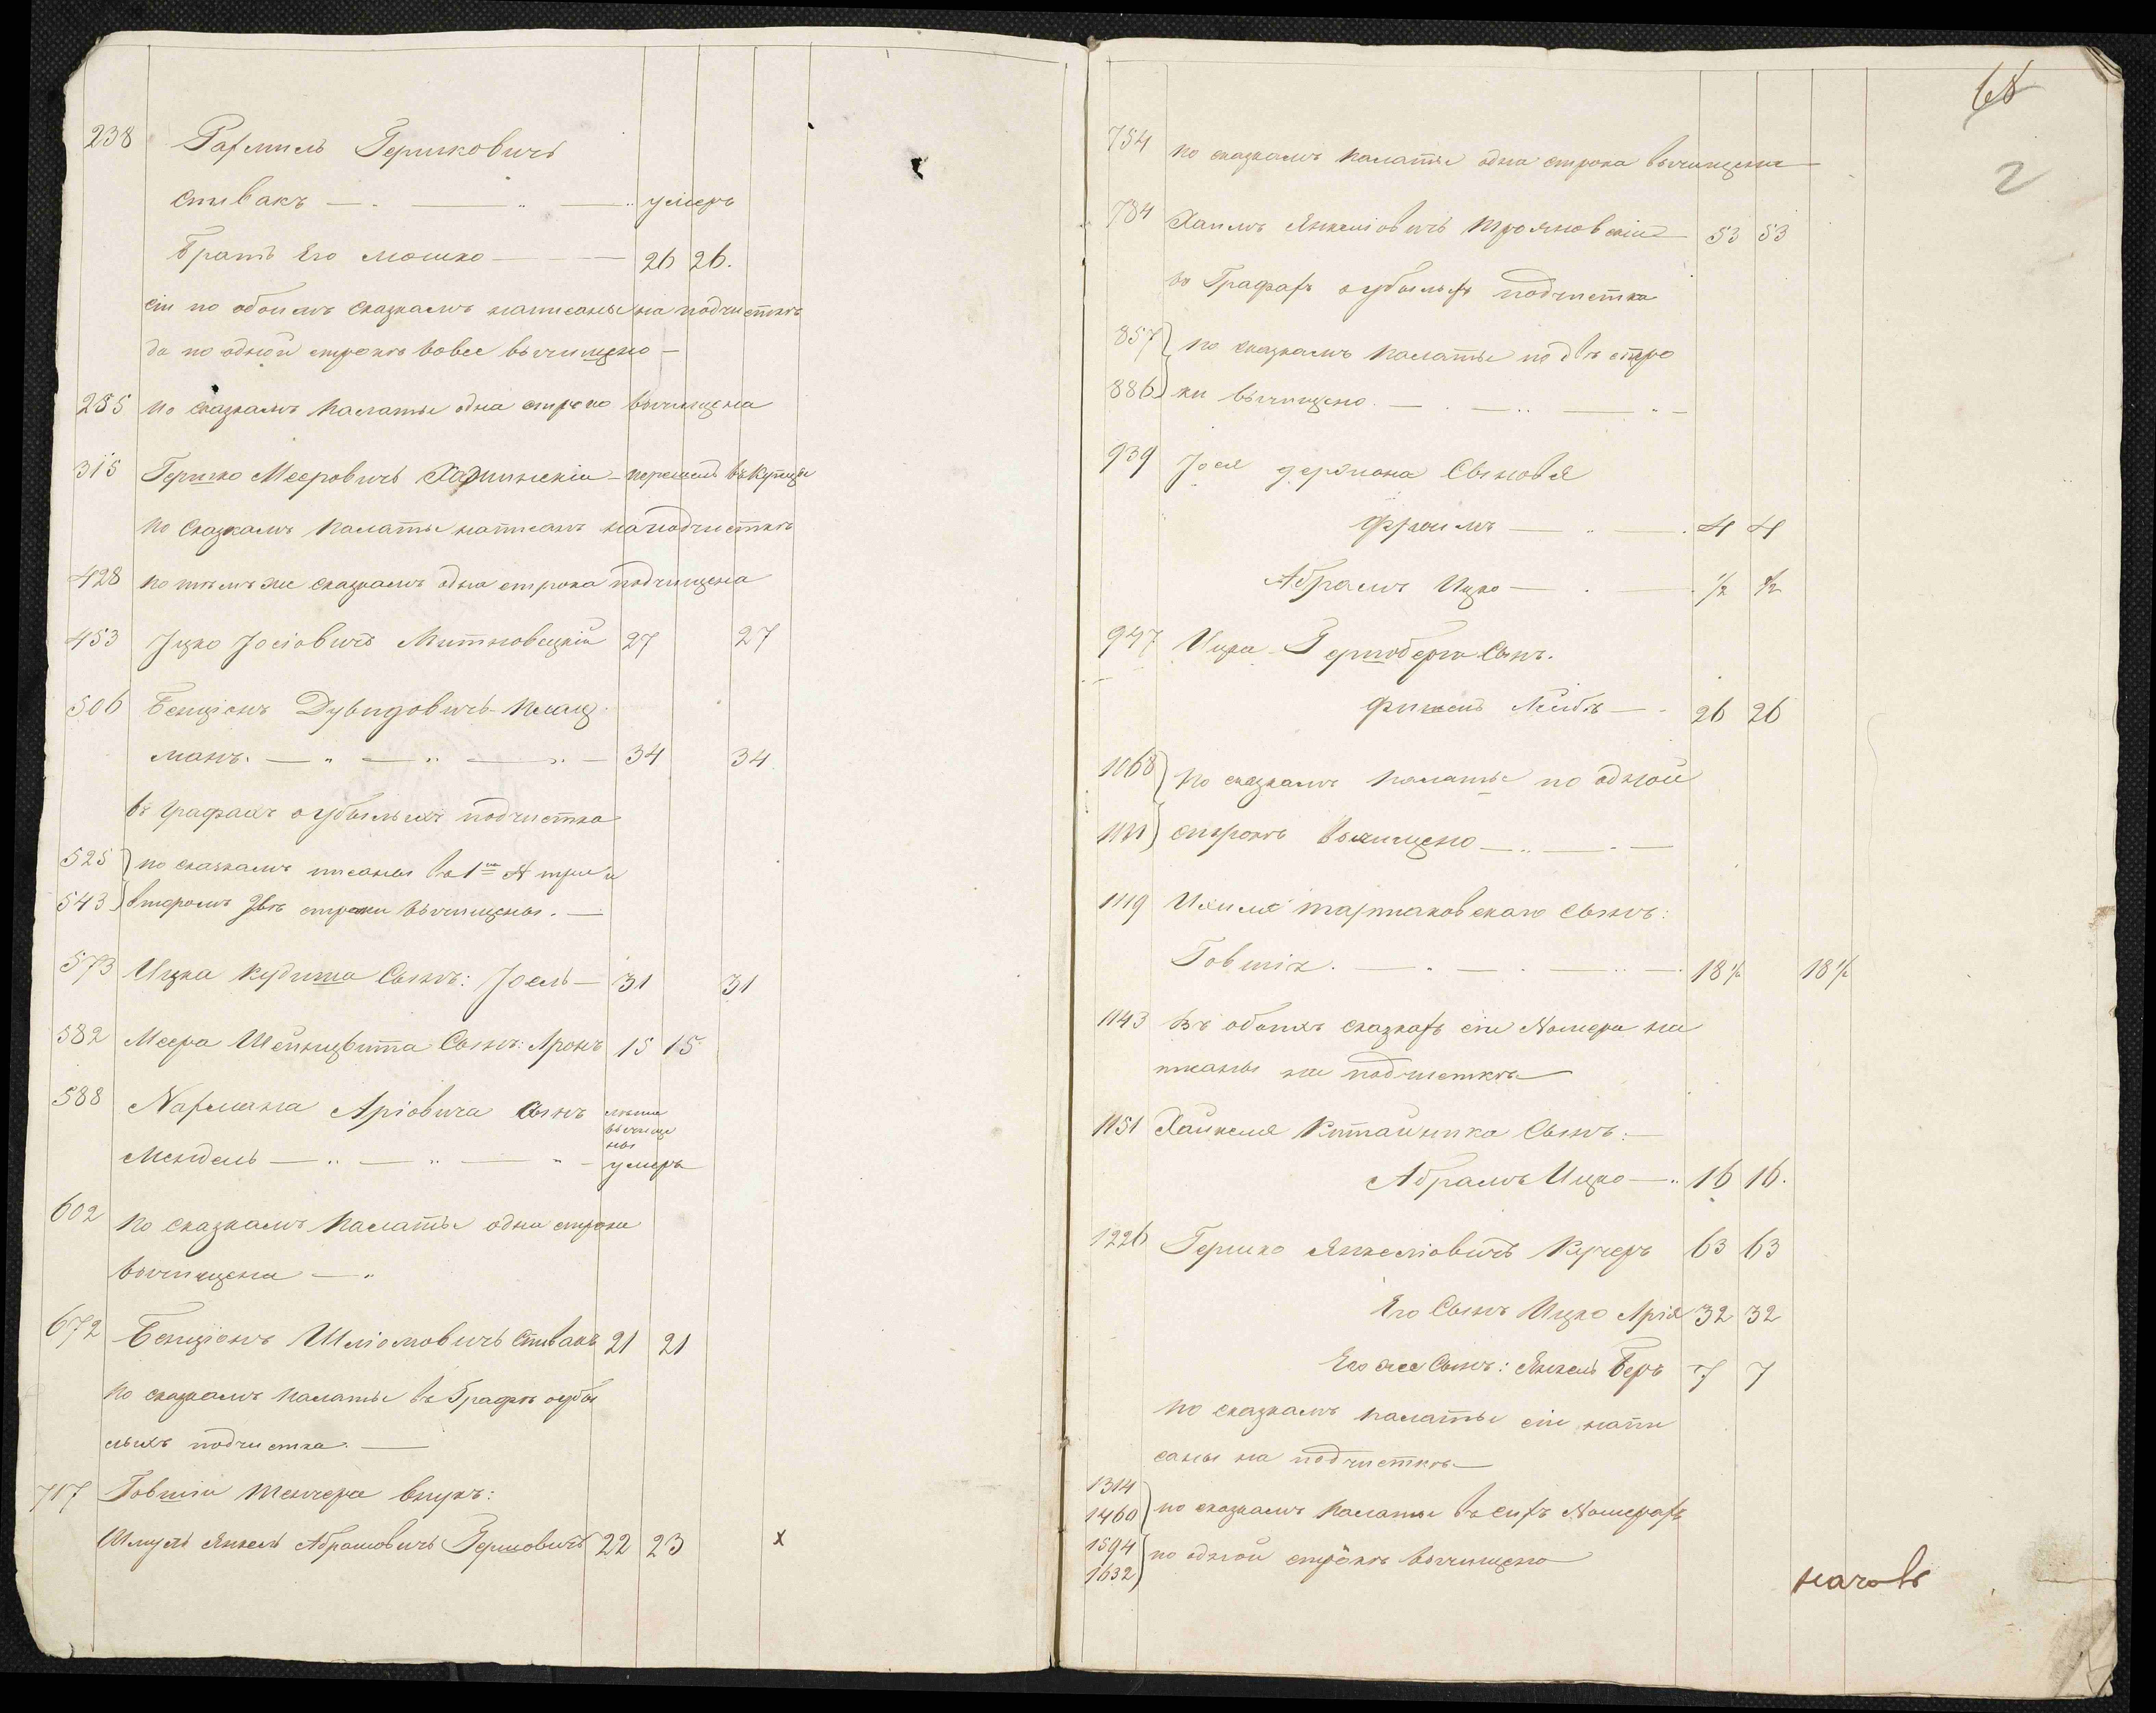 238 Рахмиль Гершковичъ
спивакъ — умеръ
Братъ Его мошко — 26 26.
сіи по обоимъ сказкамъ написаны на подчисткѣ
да по одной строкѣ вовсе вычищено —
255 по сказкамъ палаты одна строка вычищена
315 Гершко Мееровичъ — перешелъ въ купцы
по сказкамъ палаты написанъ на подчисткѣ
428 по тѣмъ же сказкамъ одна строка подчищена
453 Іцко Іосіовичъ Митновецкій 27 27
506 Бенціонъ Дувидовичъ Клац
манъ. — 34 34
въ графахъ о убылыхъ подчистка
525 по сказкамъ писаны въ 1й А три и
543 второмъ двѣ строки вычищены. —
573 Ицка Кудиша Сынъ: Іоель — 31 31
582 Меера Шейнцвита Сынъ: Аронъ 15 15
588 Нахмана Аріовича сынъ лѣта
вычище
ны
Мендель — умеръ
602 по сказкамъ палаты одна строка
вычищена —
672 Бенціонъ Шліомовичъ Спивакъ 21 21
по сказкамъ палаты въ Графѣ о убы
лыхъ подчистка. —
717 Говшіи Тенчера внукъ:
Шмуль Янкель Абрамовичъ Гершовичъ 22 23 x
68
2
754 по сказкамъ палаты одна строка вычищена
784 Хаимъ Янкеліовичъ Трояновскій 53 53
въ Графахъ о убылыхъ подчистка
857 по сказкамъ палаты по двѣ стро
886 ки вычищено. —
939 Іося Сыновья
Фроимъ — 4 4
Абрамъ Ицко — 1/2 1/2
947 Ицка Гершберга Сынъ.
Фишель Лейбъ — 26 26
1068 по сказкамъ палаты по одной
1111 строкѣ вычищено —
1119 Ихиля Тартаковскаго сынъ:
Говшія. — 18 1/2 18 1/2
1143 Въ обоихъ сказкахъ сіи Номера на
писаны на подчисткѣ
1151 Хайкеля Китайника Сынъ: —
Абрамъ Ицко — 16 16.
1226 Гершко Янкеліовичъ Кучеръ 63 63
Его Сынъ Ицко Арія 32 32
Его же Сынъ: Янкель Беръ 7 7
по сказкамъ палаты сіи напи
саны на подчисткѣ —
1314
1460 по сказкамъ палаты въ сихъ Номерахъ
1594 по одной строкѣ вычищено
1632